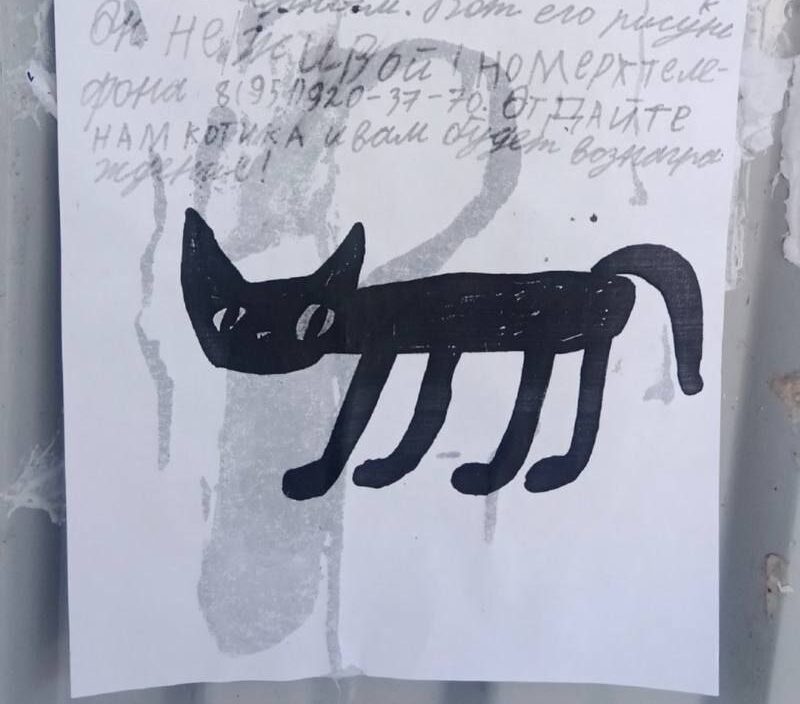 Вот его рисунк
Он не живой! номерктеле-
фона 8(951)920-37-70. ОТДАЙТЕ
НАМ КОТИКА и вам будет вознагра
ждение!